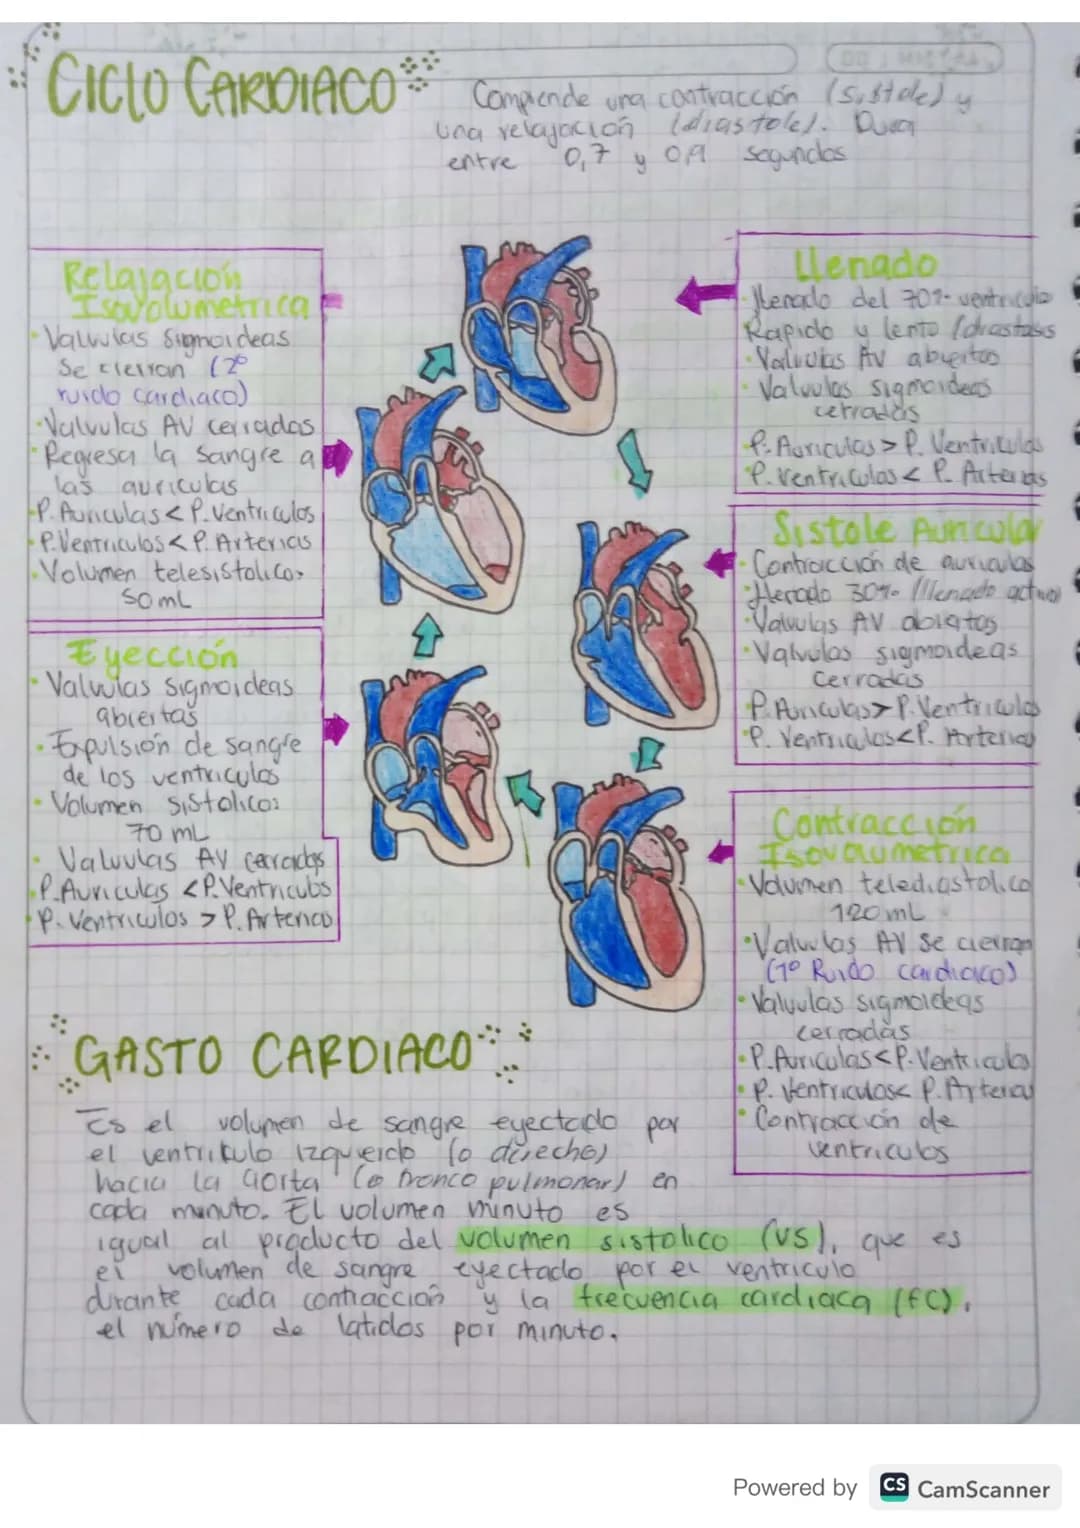 CICLO CARDIACO
Comprende una contracción (sistole) y
una relajación (diastole). Dura
entre 0,7 y 0,9 segundos
Relajación
Isovolumetrica
Valvulas Sigmoideas
Se cierran (2º
ruido cardiaco)
Valvulas AV cerradas
Regresa la Sangre a
las auriculas
P. Auriculas < P. Ventriculos
P. Ventriculos < P. Arterias
Volumen telesistolico:
50 mL
Eyección
Valvulas Sigmoideas
abiertas
Expulsión de sangre
de los ventriculos
Volumen sistolico:
70 mL
Valvulas AV cerradas
P. Auriculas < P. Ventriculos
P. Ventriculos > P. Arterias
Llenado
llenado del 70% ventriculo
Rapido y lento (diastasis
Valvulas AV abiertas
Valvulas sigmoideas
cerradas
P. Auriculas > P. Ventriculos
P. Ventriculos < P. Arterias
Sistole Auricular
Contracción de auriculas
llenado 30% (llenado activo)
Valvulas AV abiertas
Valvulas sigmoideas
cerradas
P. Auriculas > P. Ventriculos
P. Ventriculos < P. Arterias
Contracción
Isovolumetrica
Volumen telediastolico
120 mL
Valvulas AV se cierran
(1º Ruido cardiaco)
Valvulas sigmoideas
cerradas
P. Auriculas < P. Ventriculos
P. Ventriculos < P. Arterias
Contracción de
ventriculos
GASTO CARDIACO
Es el volumen de sangre eyectado por
el ventriculo izquierdo (o derecho)
hacia la aorta (o tronco pulmonar) en
cada minuto. El volumen minuto es
igual al producto del volumen sistolico (VS), que es
el volumen de sangre eyectado por el ventriculo
durante cada contracción y la frecuencia cardiaca (FC),
el número de latidos por minuto.
Powered by CS CamScanner